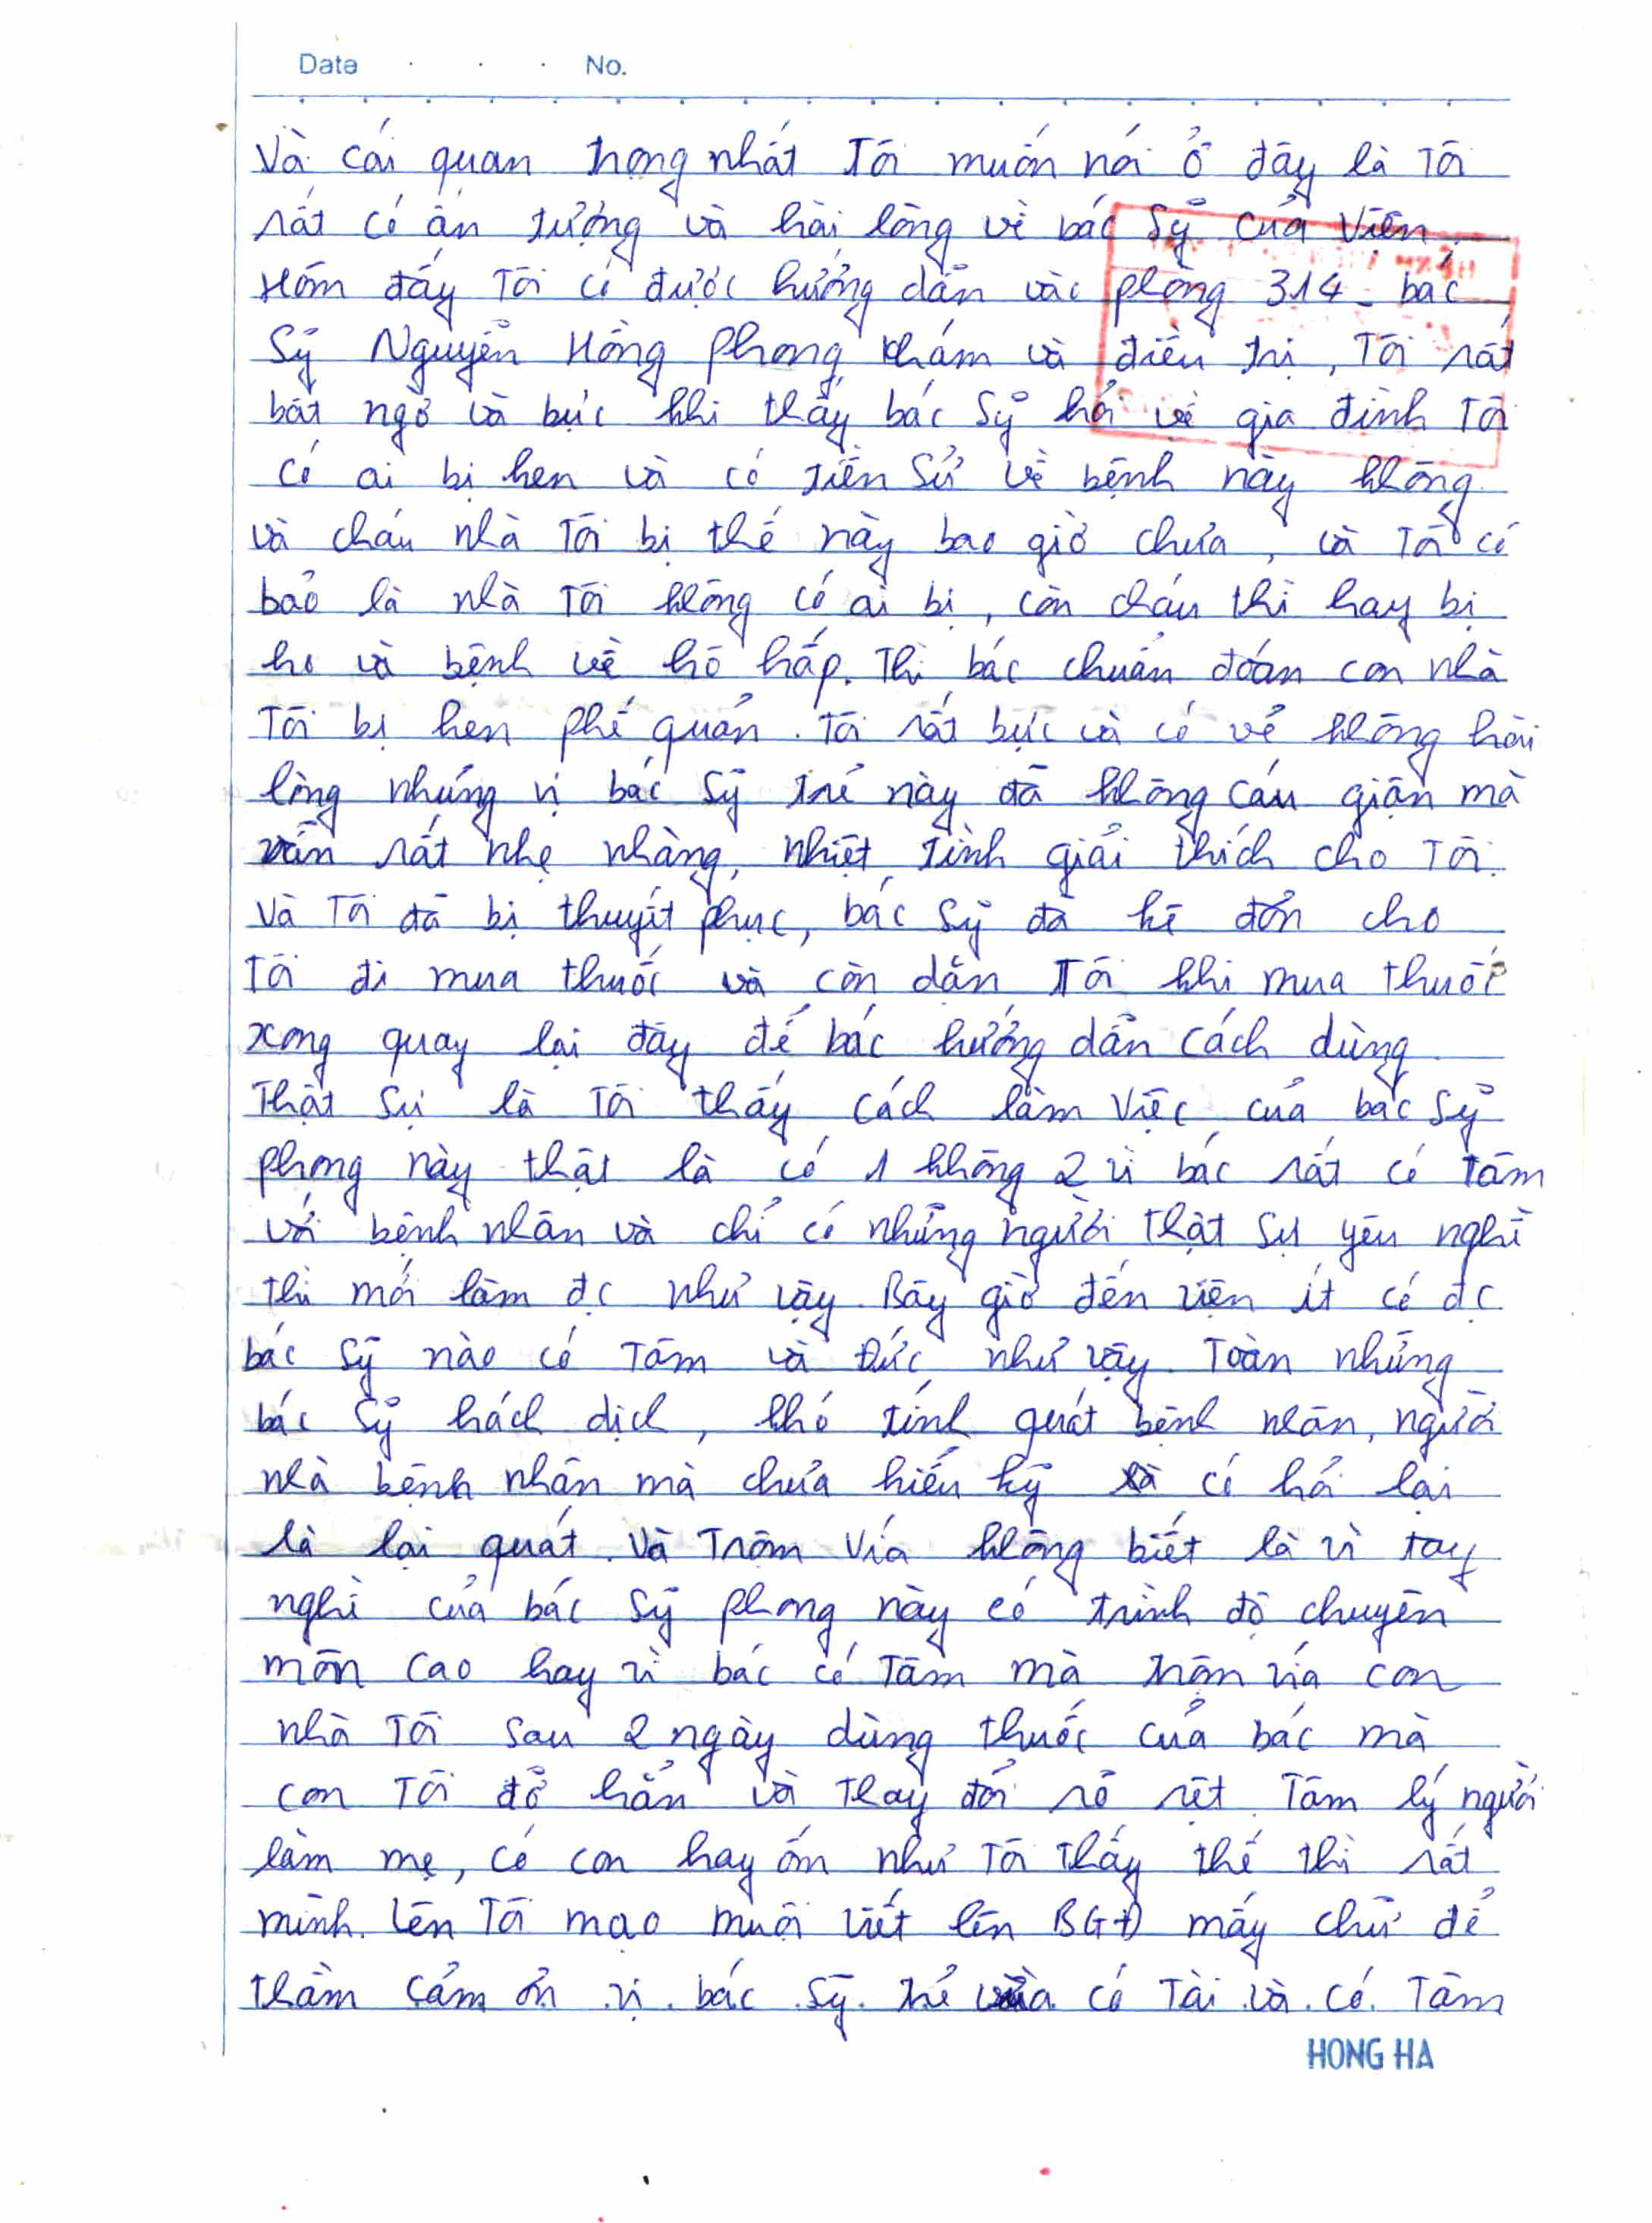 Date . . . No.
Và cái quan trọng nhất Tôi muốn nói ở đây là Tôi
rất có ấn tượng và hài lòng về bác sỹ của Viện.
Hôm đấy Tôi có được hướng dẫn vào phòng 314 - bác
sỹ Nguyễn Hồng Phong khám và điều trị, Tôi rất
bất ngờ và bực khi thấy bác sỹ hỏi về gia đình Tôi
có ai bị hen và có tiền sử về bệnh này không
và cháu nhà Tôi bị thế này bao giờ chưa, và Tôi có
bảo là nhà Tôi không có ai bị, còn cháu thì hay bị
ho và bệnh về hô hấp. Thì bác chuẩn đoán con nhà
Tôi bị hen phế quản. Tôi rất bực và có vẻ không hài
lòng nhưng vị bác sỹ trẻ này đã không cáu giận mà
vẫn rất nhẹ nhàng, nhiệt tình giải thích cho Tôi.
Và Tôi đã bị thuyết phục, bác sỹ đã kê đơn cho
Tôi đi mua thuốc và còn dặn Tôi khi mua thuốc
xong quay lại đây để bác hướng dẫn cách dùng
Thật sự là Tôi thấy cách làm việc của bác sỹ
phong này thật là có 1 không 2 vì bác rất có Tâm
với bệnh nhân và chỉ có những người Thật sự yêu nghề
thì mới làm đc như vậy. Bây giờ đến viện ít có đc
bác sỹ nào có Tâm và Đức như vậy. Toàn những
bác sỹ hách dịch, khó tính quát bệnh nhân, người
nhà bệnh nhân mà chưa hiểu kỹ có hỏi lại
là lại quát. Và Trộm Vía không biết là vì tay
nghề của bác sỹ phong này có trình độ chuyên
môn cao hay vì bác có Tâm mà trộm vía con
nhà Tôi sau 2 ngày dùng thuốc của bác mà
con Tôi đỡ hẳn và Thay đổi rõ rệt. Tâm lý người
làm mẹ, có con hay ốm như Tôi thấy thế thì rất
mình. Lên Tôi mạo muội viết lên BGĐ mấy chữ để
thầm cảm ơn vị bác sỹ trẻ vừa có Tài và có Tâm
HONG HA